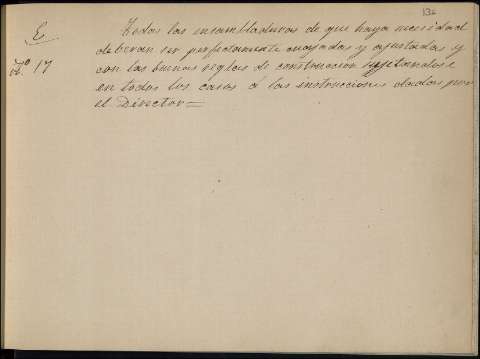 136
E
Nº 17
Todas las ensambladuras de que haya necesidad
deberan ser perfectamente encajadas y ajustadas y
con las buenas reglas de construccion sujetandose
en todos los casos á las instrucciones dadas por
el Director=